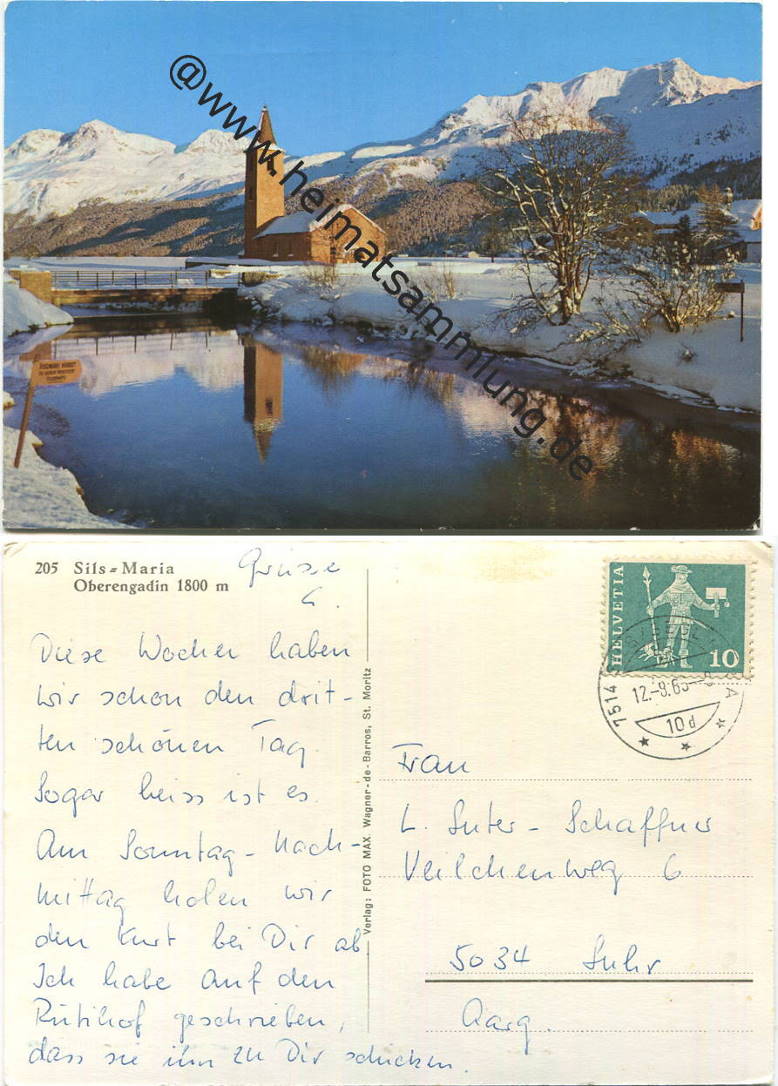 @www.heimatsammlung.de
205 Sils=Maria
Oberengadin 1800 m
Grüsse
Diese Wochen haben
wir schon den drit-
ten schönen Tag.
Sogar heiss ist es.
Am Sonntag-Nach-
mittag holen wir
den Kurt bei Dir ab
Ich habe auf den
Rütihof geschrieben,
dass sie ihn zu Dir schicken.
Verlag: FOTO MAX. Wagner-de-Barros, St. Moritz
HELVETIA
10
7514
12.-9.65
10d
Frau
L. Suter-Schaffner
Veilchenweg 6
5034 Suhr
Aarg.